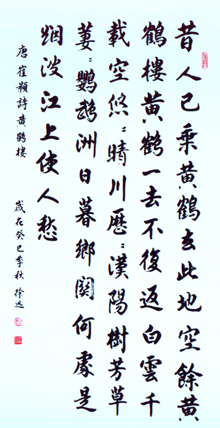 昔人已乘黄鶴去此地空餘黄
鶴樓黄鶴一去不復返白雲千
載空悠:晴川歷:漢陽樹芳草
萋:鸚鵡洲日暮鄉關何處是
烟波江上使人愁
唐崔顥詩黄鶴樓
歲在癸巳季秋徐迅